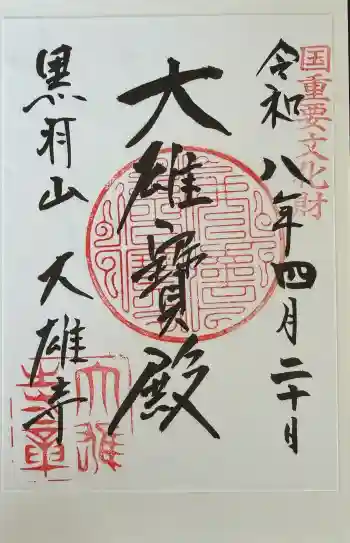 国重要文化財
令和八年四月二十日
大雄寳殿
黒羽山 大雄寺